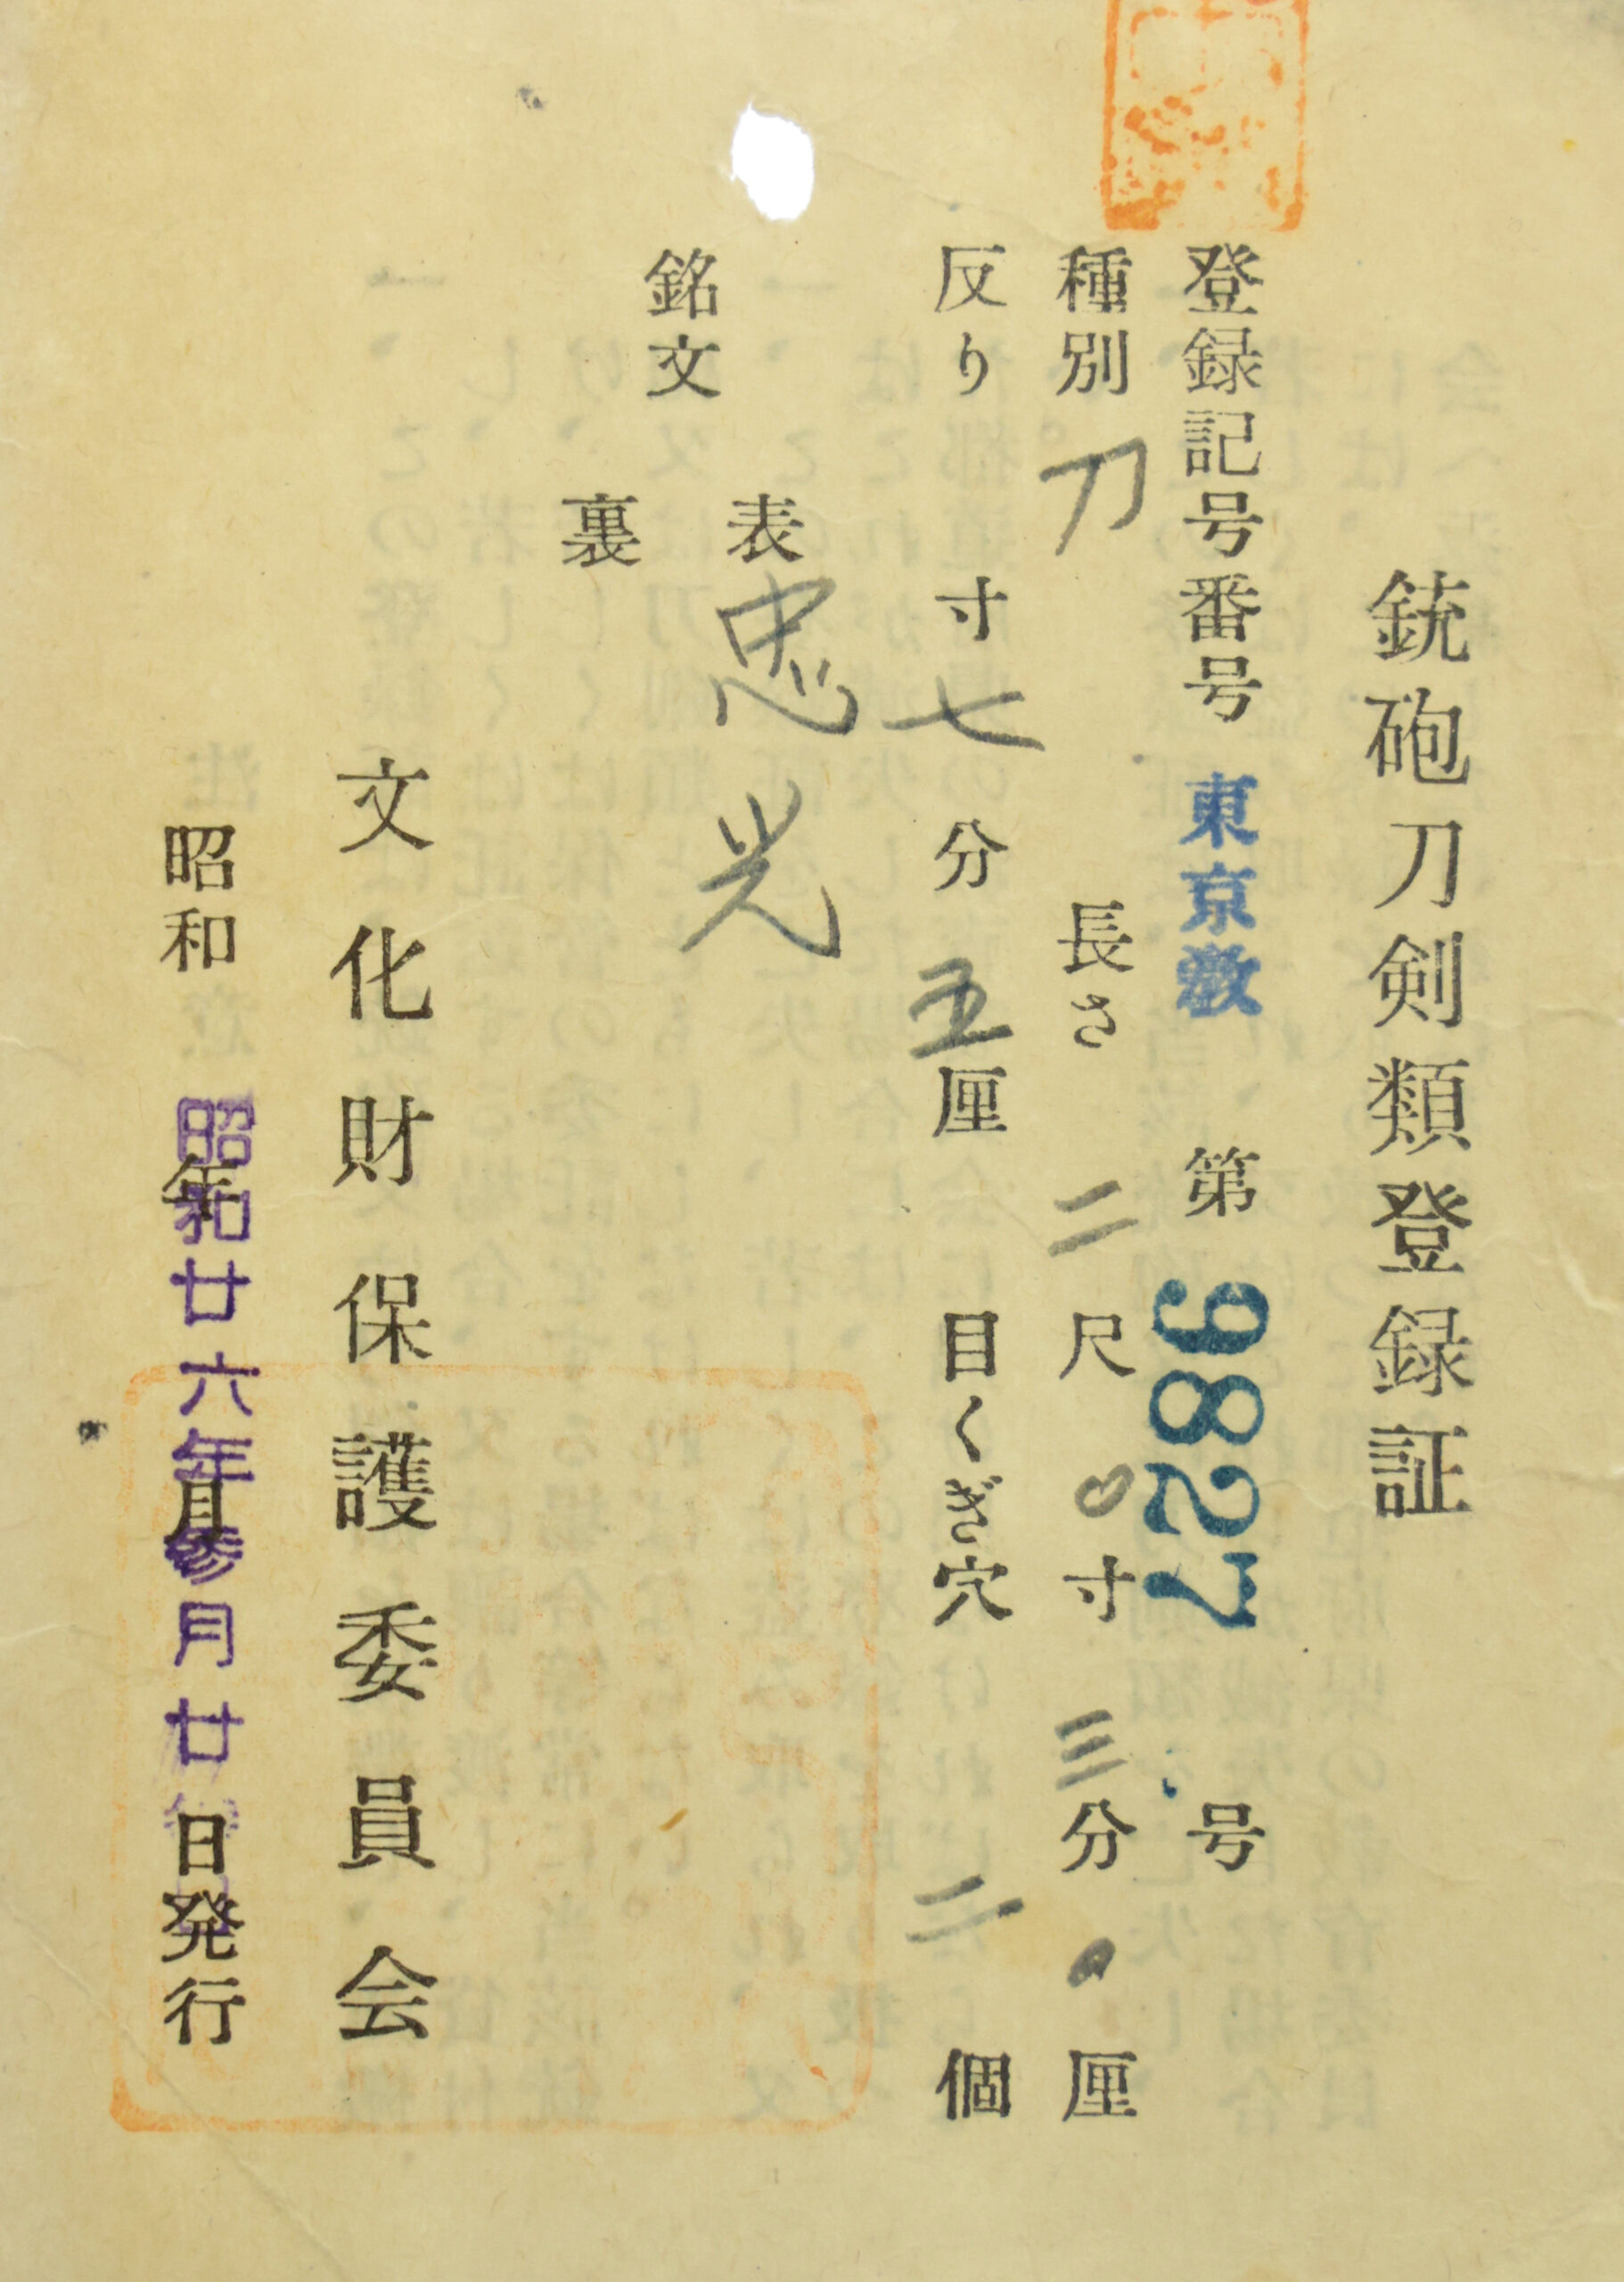 銃砲刀剣類登録証
登録記号番号 東京教 第 9827 号
種別 刀 長さ 二尺〇寸三分〇厘
反り 寸七分五厘 目くぎ穴 二個
銘文
表 忠光
裏
文化財保護委員会
昭和 年 月 日発行
昭和廿六年参月廿